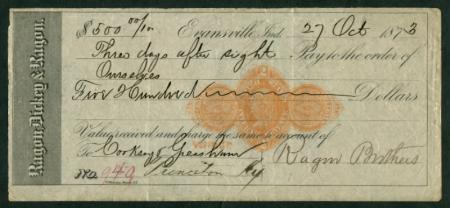 Ragon, Dickey & Ragon.
$500 00/100 Evansville, Ind. 27 Oct 1873
Three days after sight Pay to the order of
Ourselves
Five Hundred Dollars
Value received and charge the same to account of
To Ragon Brothers
Princeton Ky
No. 949